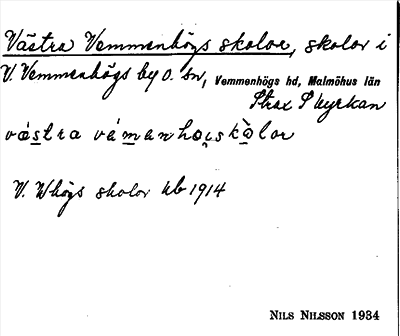 Västra Vemmenhögs skolor, skolor i
V. Vemmenhögs by o. sn, Vemmenhögs hd, Malmöhus län
Strax S kyrkan
västra vämanhocskolor
V. Whögs skolor kb 1914
NILS NILSSON 1934